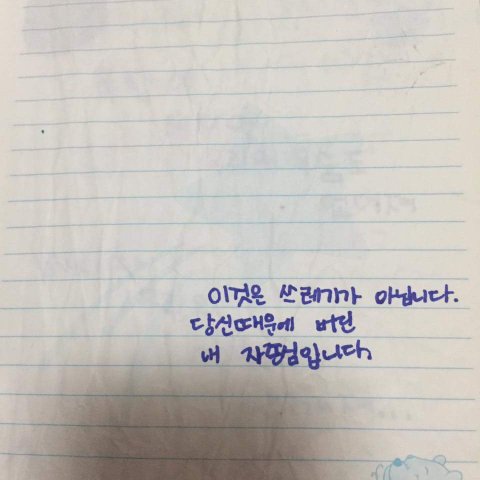 이것은 쓰레기가 아닙니다.
당신때문에 버린
내 자존심입니다.